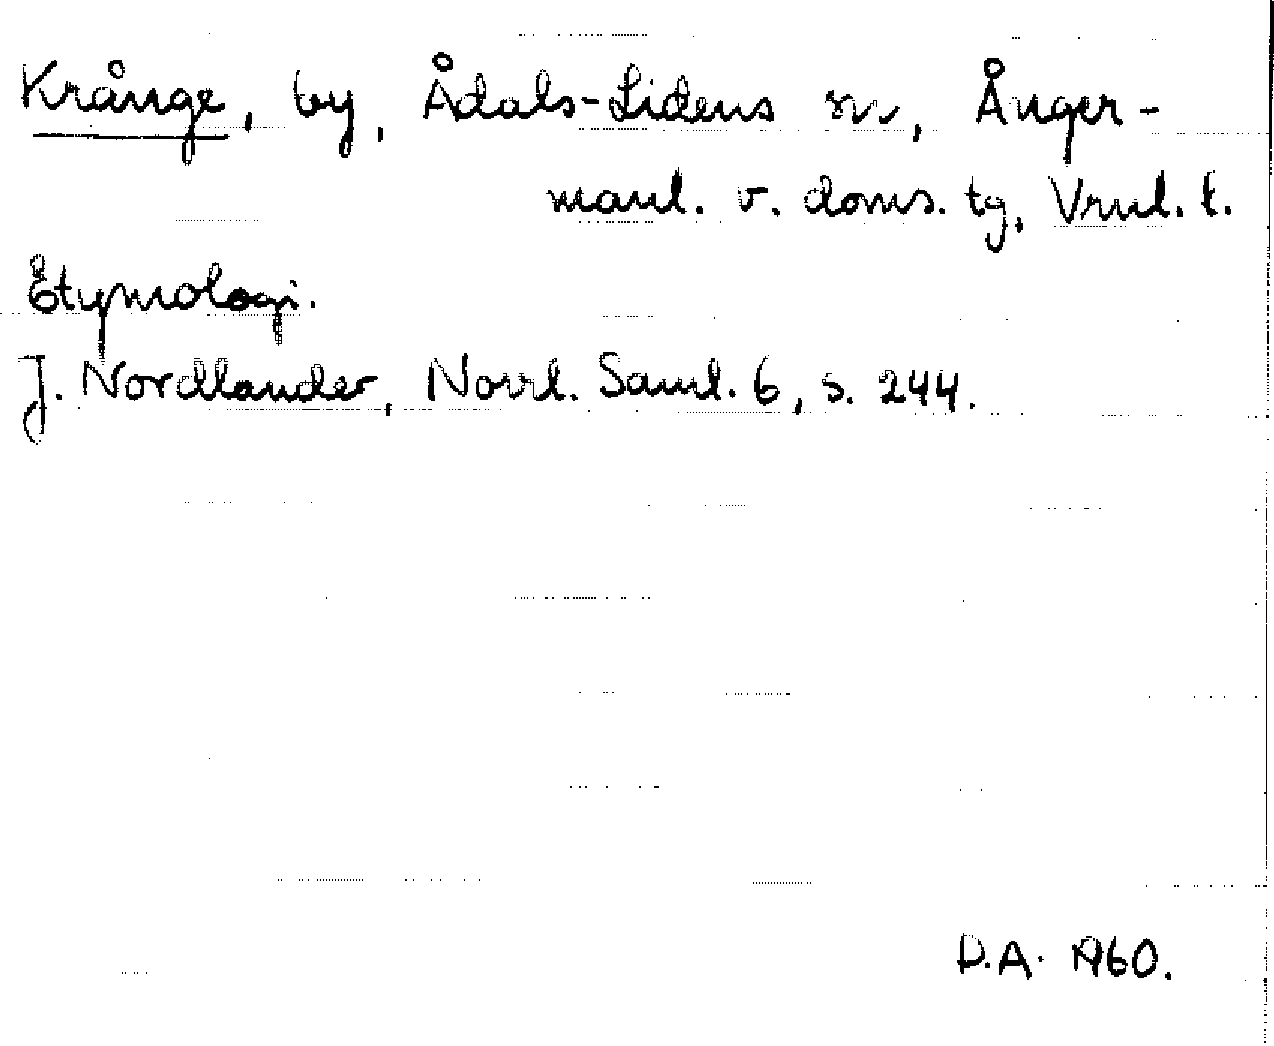 Krånge, by, Ådals-Lidens sn, Ånger-
manl. v. doms. tg, Vrnl. l.
Etymologi.
J. Nordlander, Norrl. Saml. 6, s. 244.
D.A. 1960.